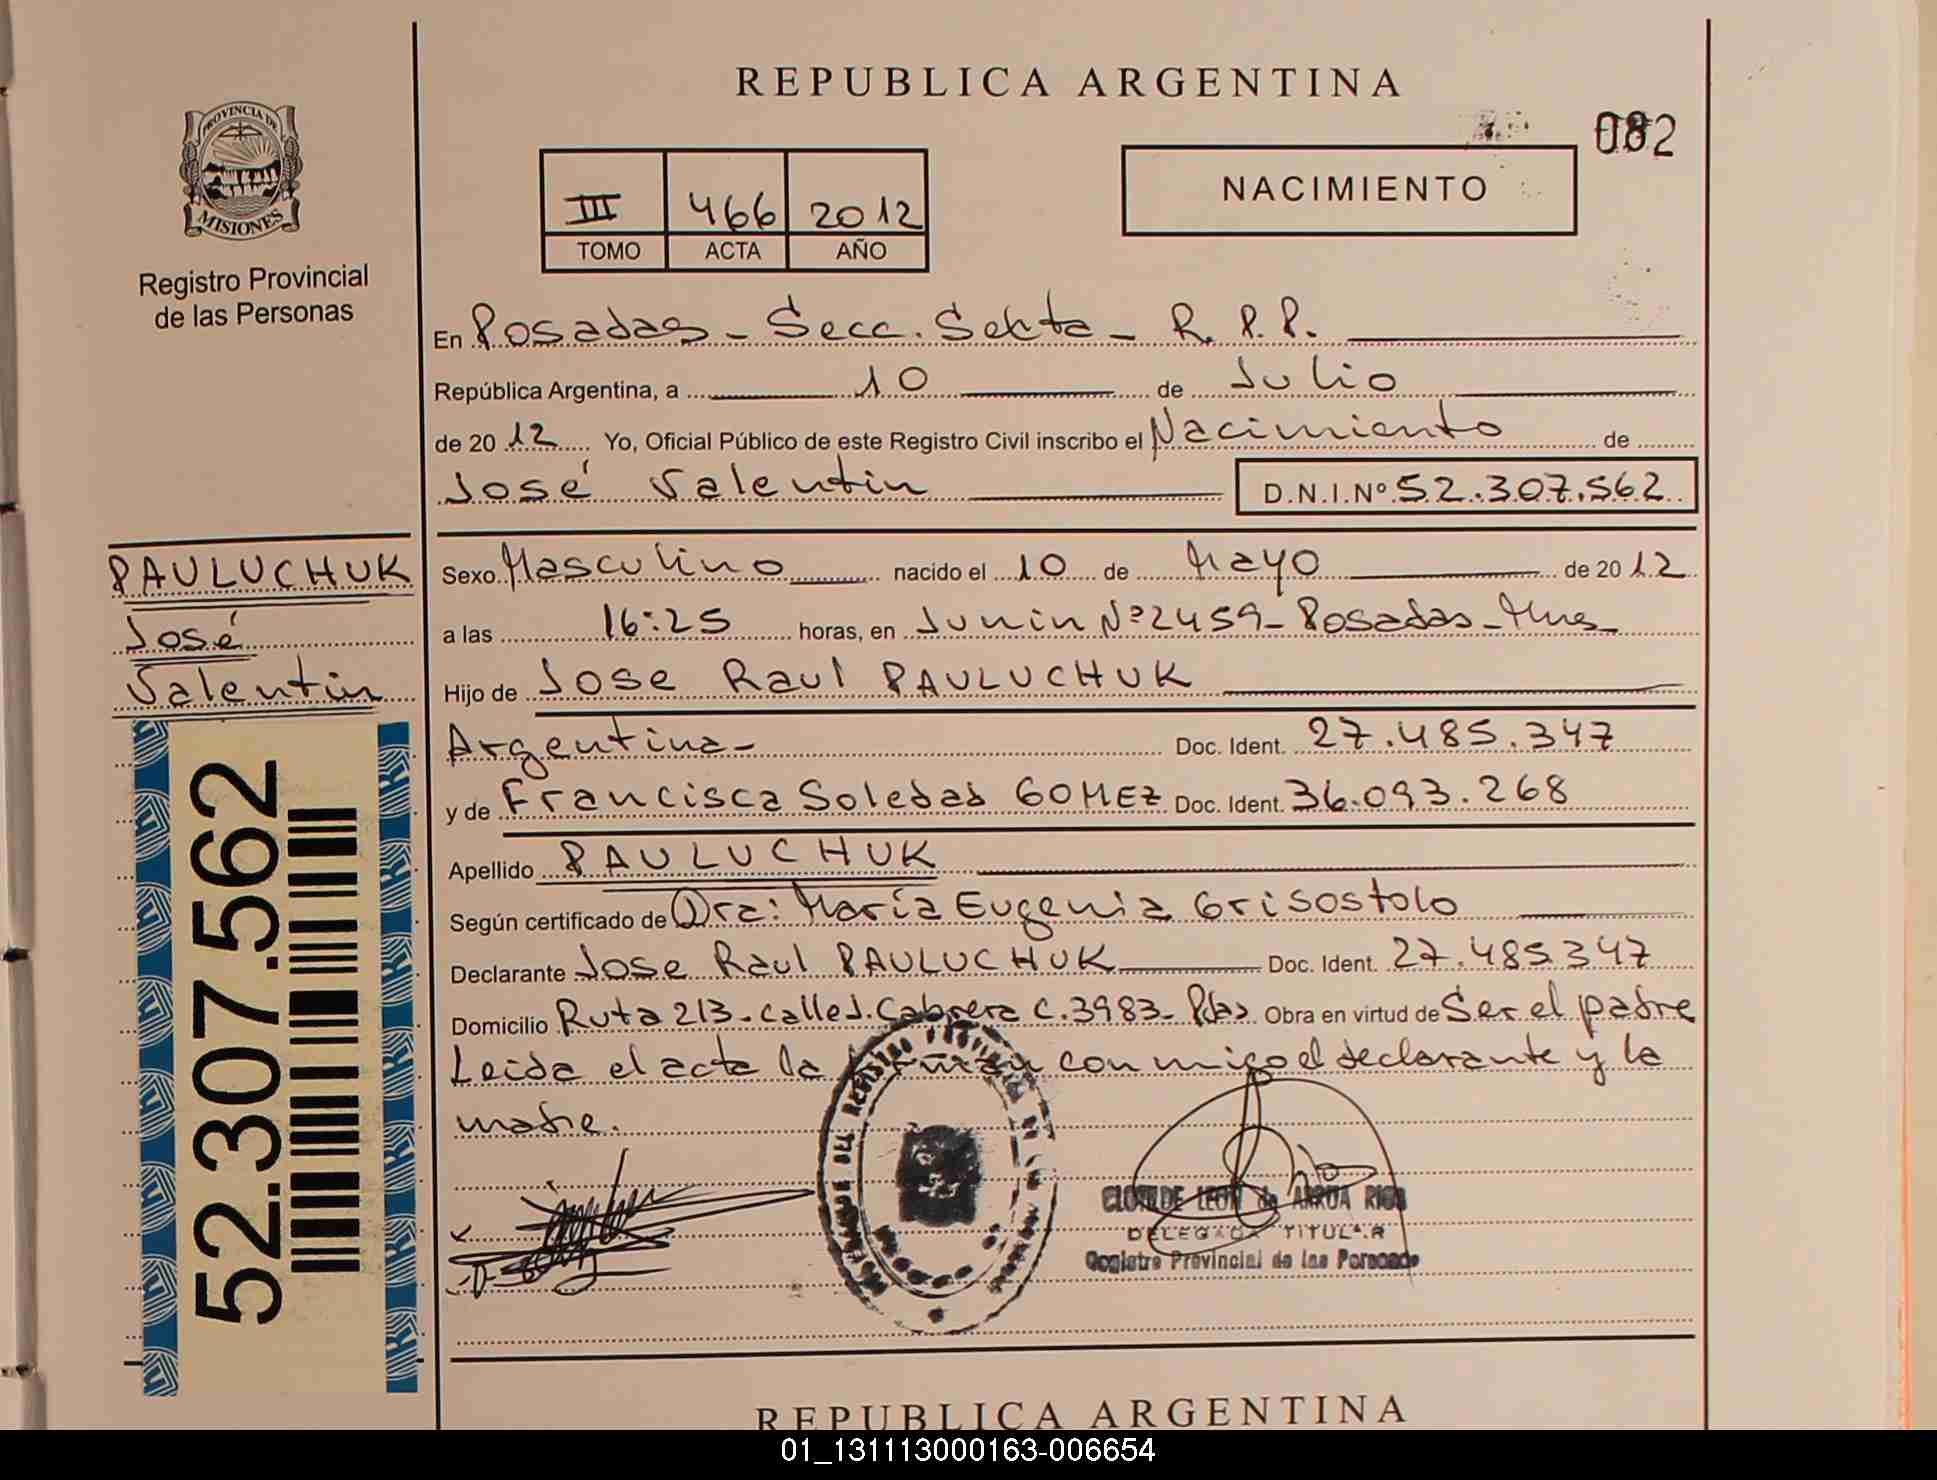 REPUBLICA ARGENTINA
082
PROVINCIA DE
MISIONES
Registro Provincial
de las Personas
III 466 2012
TOMO ACTA AÑO
NACIMIENTO
En Posadas - Secc. Sexta - R. P. P.
República Argentina, a 10 de Julio
de 20 12 Yo, Oficial Público de este Registro Civil inscribo el Nacimiento de
José Valentín D.N.I. Nº 52.307.562
PAULUCHUK
José
Valentín
Sexo Masculino nacido el 10 de Mayo de 20 12
a las 16:25 horas, en Junin Nº 2459 - Posadas - Mnes -
Hijo de JOSE Raul PAULUCHUK
Argentina - Doc. Ident. 27.485.347
y de Francisca Soledad GOMEZ Doc. Ident. 36.093.268
Apellido PAULUCHUK
Según certificado de Dra: María Eugenia Grisostolo
Declarante Jose Raul PAULUCHUK Doc. Ident. 27.485.347
Domicilio Ruta 213 - calle J. Cabrera C. 3983 - Pdas Obra en virtud de Ser el padre
Leida el acta la firman conmigo el declarante y la
madre.
52.307.562
CLOTILDE LEON de ARRUA RIOS
DELEGADA TITULAR
Registro Provincial de las Personas
REPUBLICA ARGENTINA
01_131113000163-006654